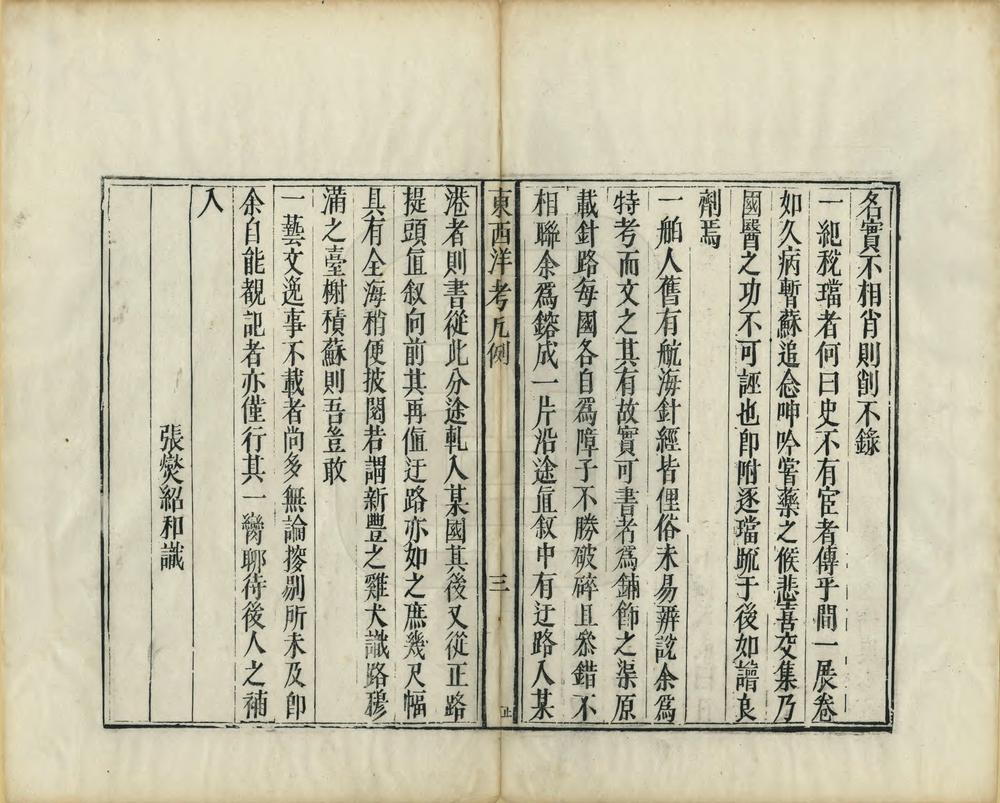 名實不相肖則削不錄
一紀稅璫者何曰史不有宦者傳乎間一展卷
如久病暫蘇追念呻吟甞藥之候悲喜交集乃
國醫之功不可誣也卽附逐璫疏于後如譜良
劑焉
一舶人舊有航海針經皆俚俗未易辨說余爲
特考而文之其有故實可書者爲鋪飾之渠原
載針路每國各自爲障子不勝破碎且叅錯不
相聯余爲鎔成一片沿途直叙中有迂路入某
東西洋考凡例
三
止
港者則書從此分途軋入某國其後又從正路
提頭直叙向前其再值迂路亦如之庶幾尺幅
具有全海稍便披閱若謂新豐之雞犬識路穆
滿之臺榭積蘇則吾豈敢
一藝文逸事不載者尚多無論搜剔所未及卽
余自能覩記者亦僅行其一臠聊待後人之補
入
張燮紹和識